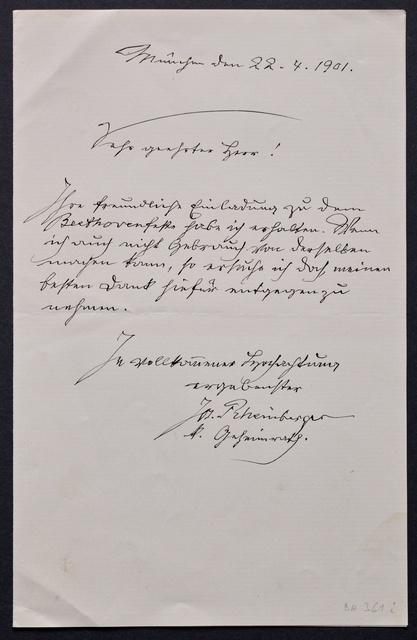 München den 22-4.1901.
Sehr geehrter Herr!
Ihre freundliche Einladung zu dem
Beethovenfeste habe ich erhalten. Wenn
ich auch nicht Gebrauch von derselben
machen kann, so ersuche ich doch meinen
besten Dank hiefür entgegenzu
nehmen.
In vollkommener Hochachtung
ergebenster
Jos. Rheinberger
k. Geheimrath.
BH 361 i